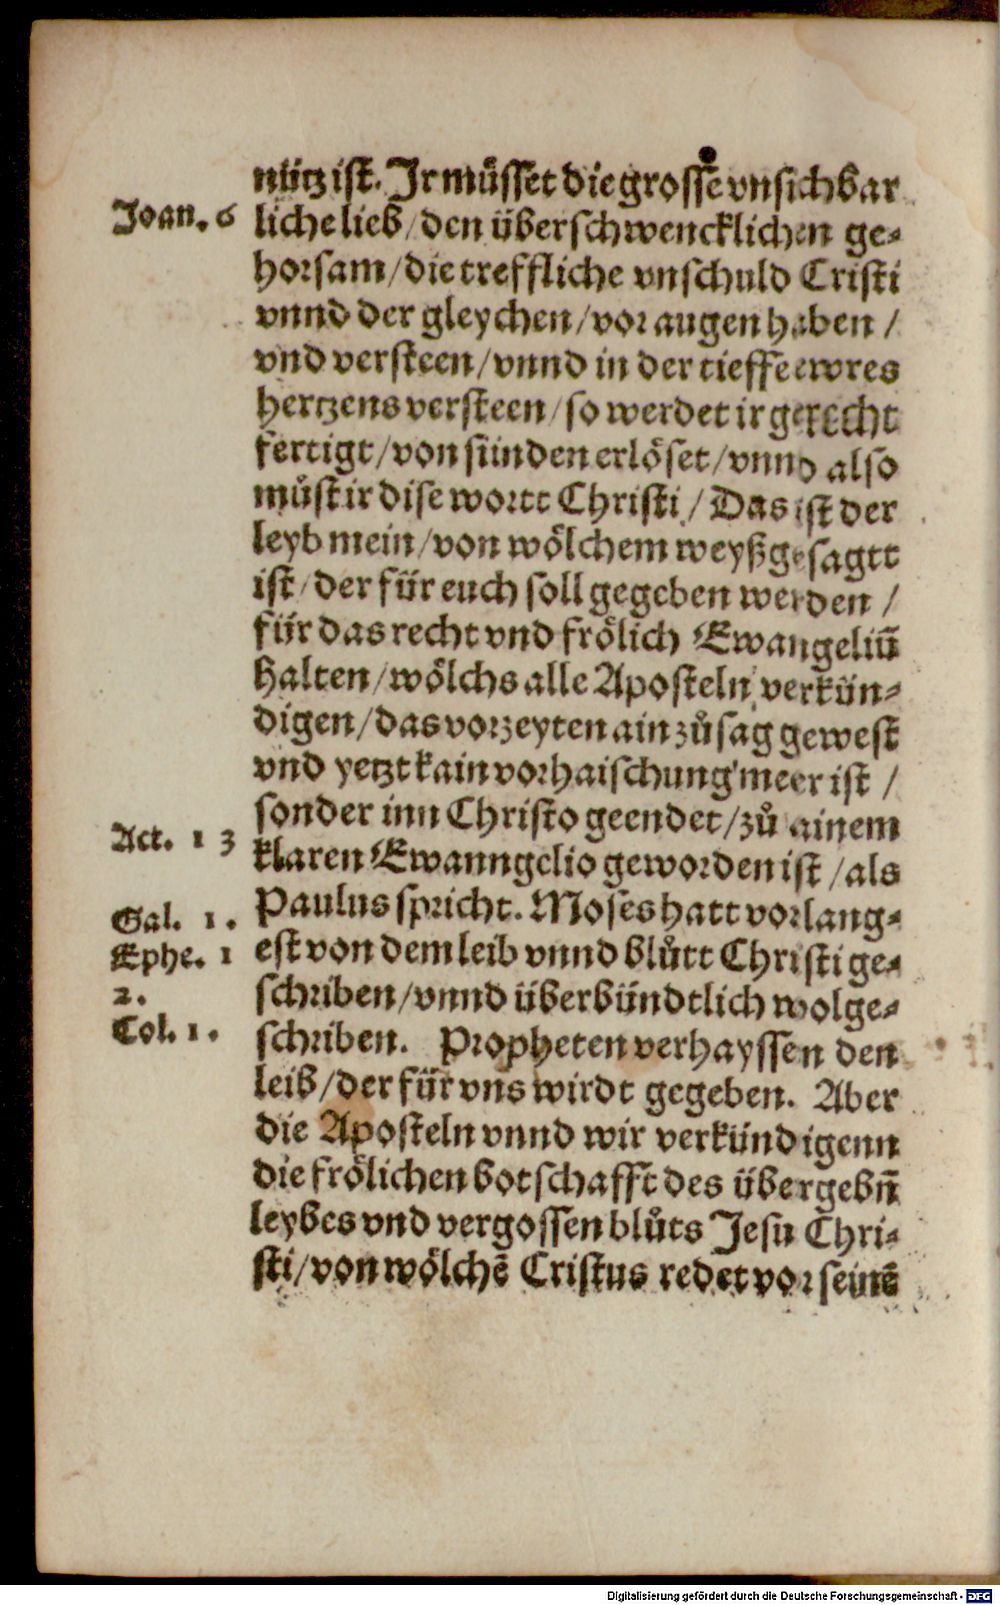 nütz ist. Ir můsset die grosse vnsichbar
Joan. 6
liche lieb / den überschwencklichen ge⸗
horsam / die treffliche vnschuld Cristi
vnnd der gleychen / vor augen haben /
vnd versteen / vnnd in der tieffe ewres
hertzens versteen / so werdet ir gerecht
fertigt / von sünden erlöset / vnnd also
můst ir dise wortt Christi / Das ist der
leyb mein / von wölchem weyßgesagtt
ist / der für euch soll gegeben werden /
für das recht vnd frölich Ewangeliū
halten / wölchs alle Aposteln verkün⸗
digen / das vorzeyten ain zůsag gewest
vnd yetzt kain vorhaischung meer ist /
sonder inn Christo geendet / zů ainem
Act. 13
klaren Ewanngelio geworden ist / als
Paulus spricht. Moses hatt vorlang⸗
Gal. 1.
est von dem leib vnnd blůtt Christi ge⸗
Ephe. 1
2.
schriben / vnnd überbündtlich wolge⸗
Col. 1.
schriben. Propheten verhayssen den
leib / der für vns wirdt gegeben. Aber
die Aposteln vnnd wir verkündigenn
die frölichen botschafft des übergebn̄
leybes vnd vergossen blůts Jesu Chri⸗
sti / von wölchē Cristus redet vor seinē
Digitalisierung gefördert durch die Deutsche Forschungsgemeinschaft - DFG